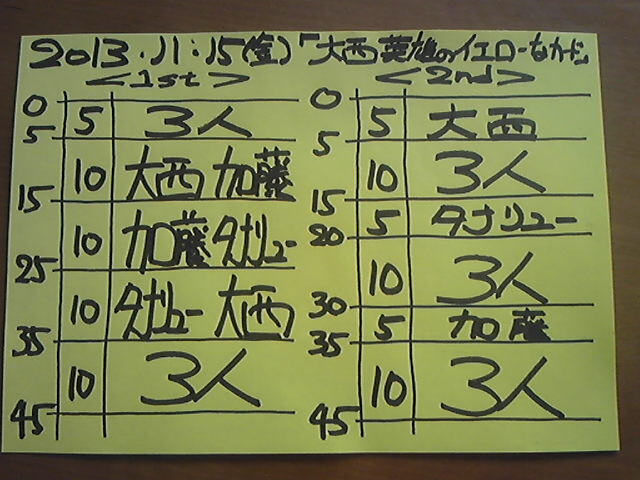 2013.11.15(金)「大西英雄のイエローなカード」
<1st>
0
5 3人
5
10 大西 加藤
15
10 加藤 タナリュー
25
10 タナリュー 大西
35
10 3人
45
<2nd>
0
5 大西
5
10 3人
15
5 タナリュー
20
10 3人
30
5 加藤
35
10 3人
45